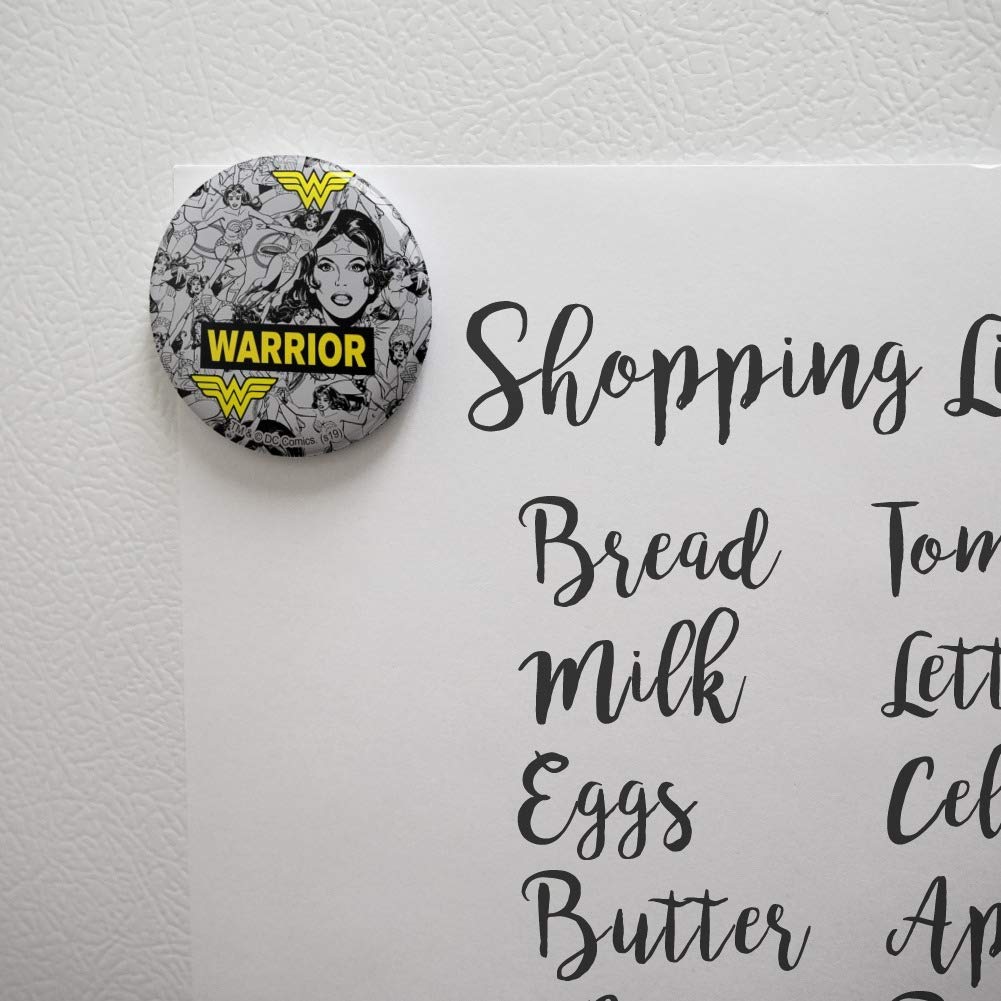 W
WARRIOR
W
TM & © DC Comics. (s19)
Shopping Li
Bread Tom
Milk Lett
Eggs Cel
Butter Ap